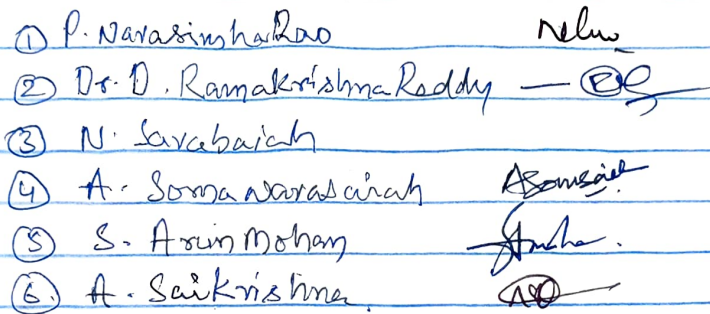 ① P. Narasimha Rao
② Dr. D. Ramakrishna Reddy —
③ N. Sarabaiah
④ A. Soma Narasaiah
⑤ S. Arun Mohan
⑥ A. Saikrishna